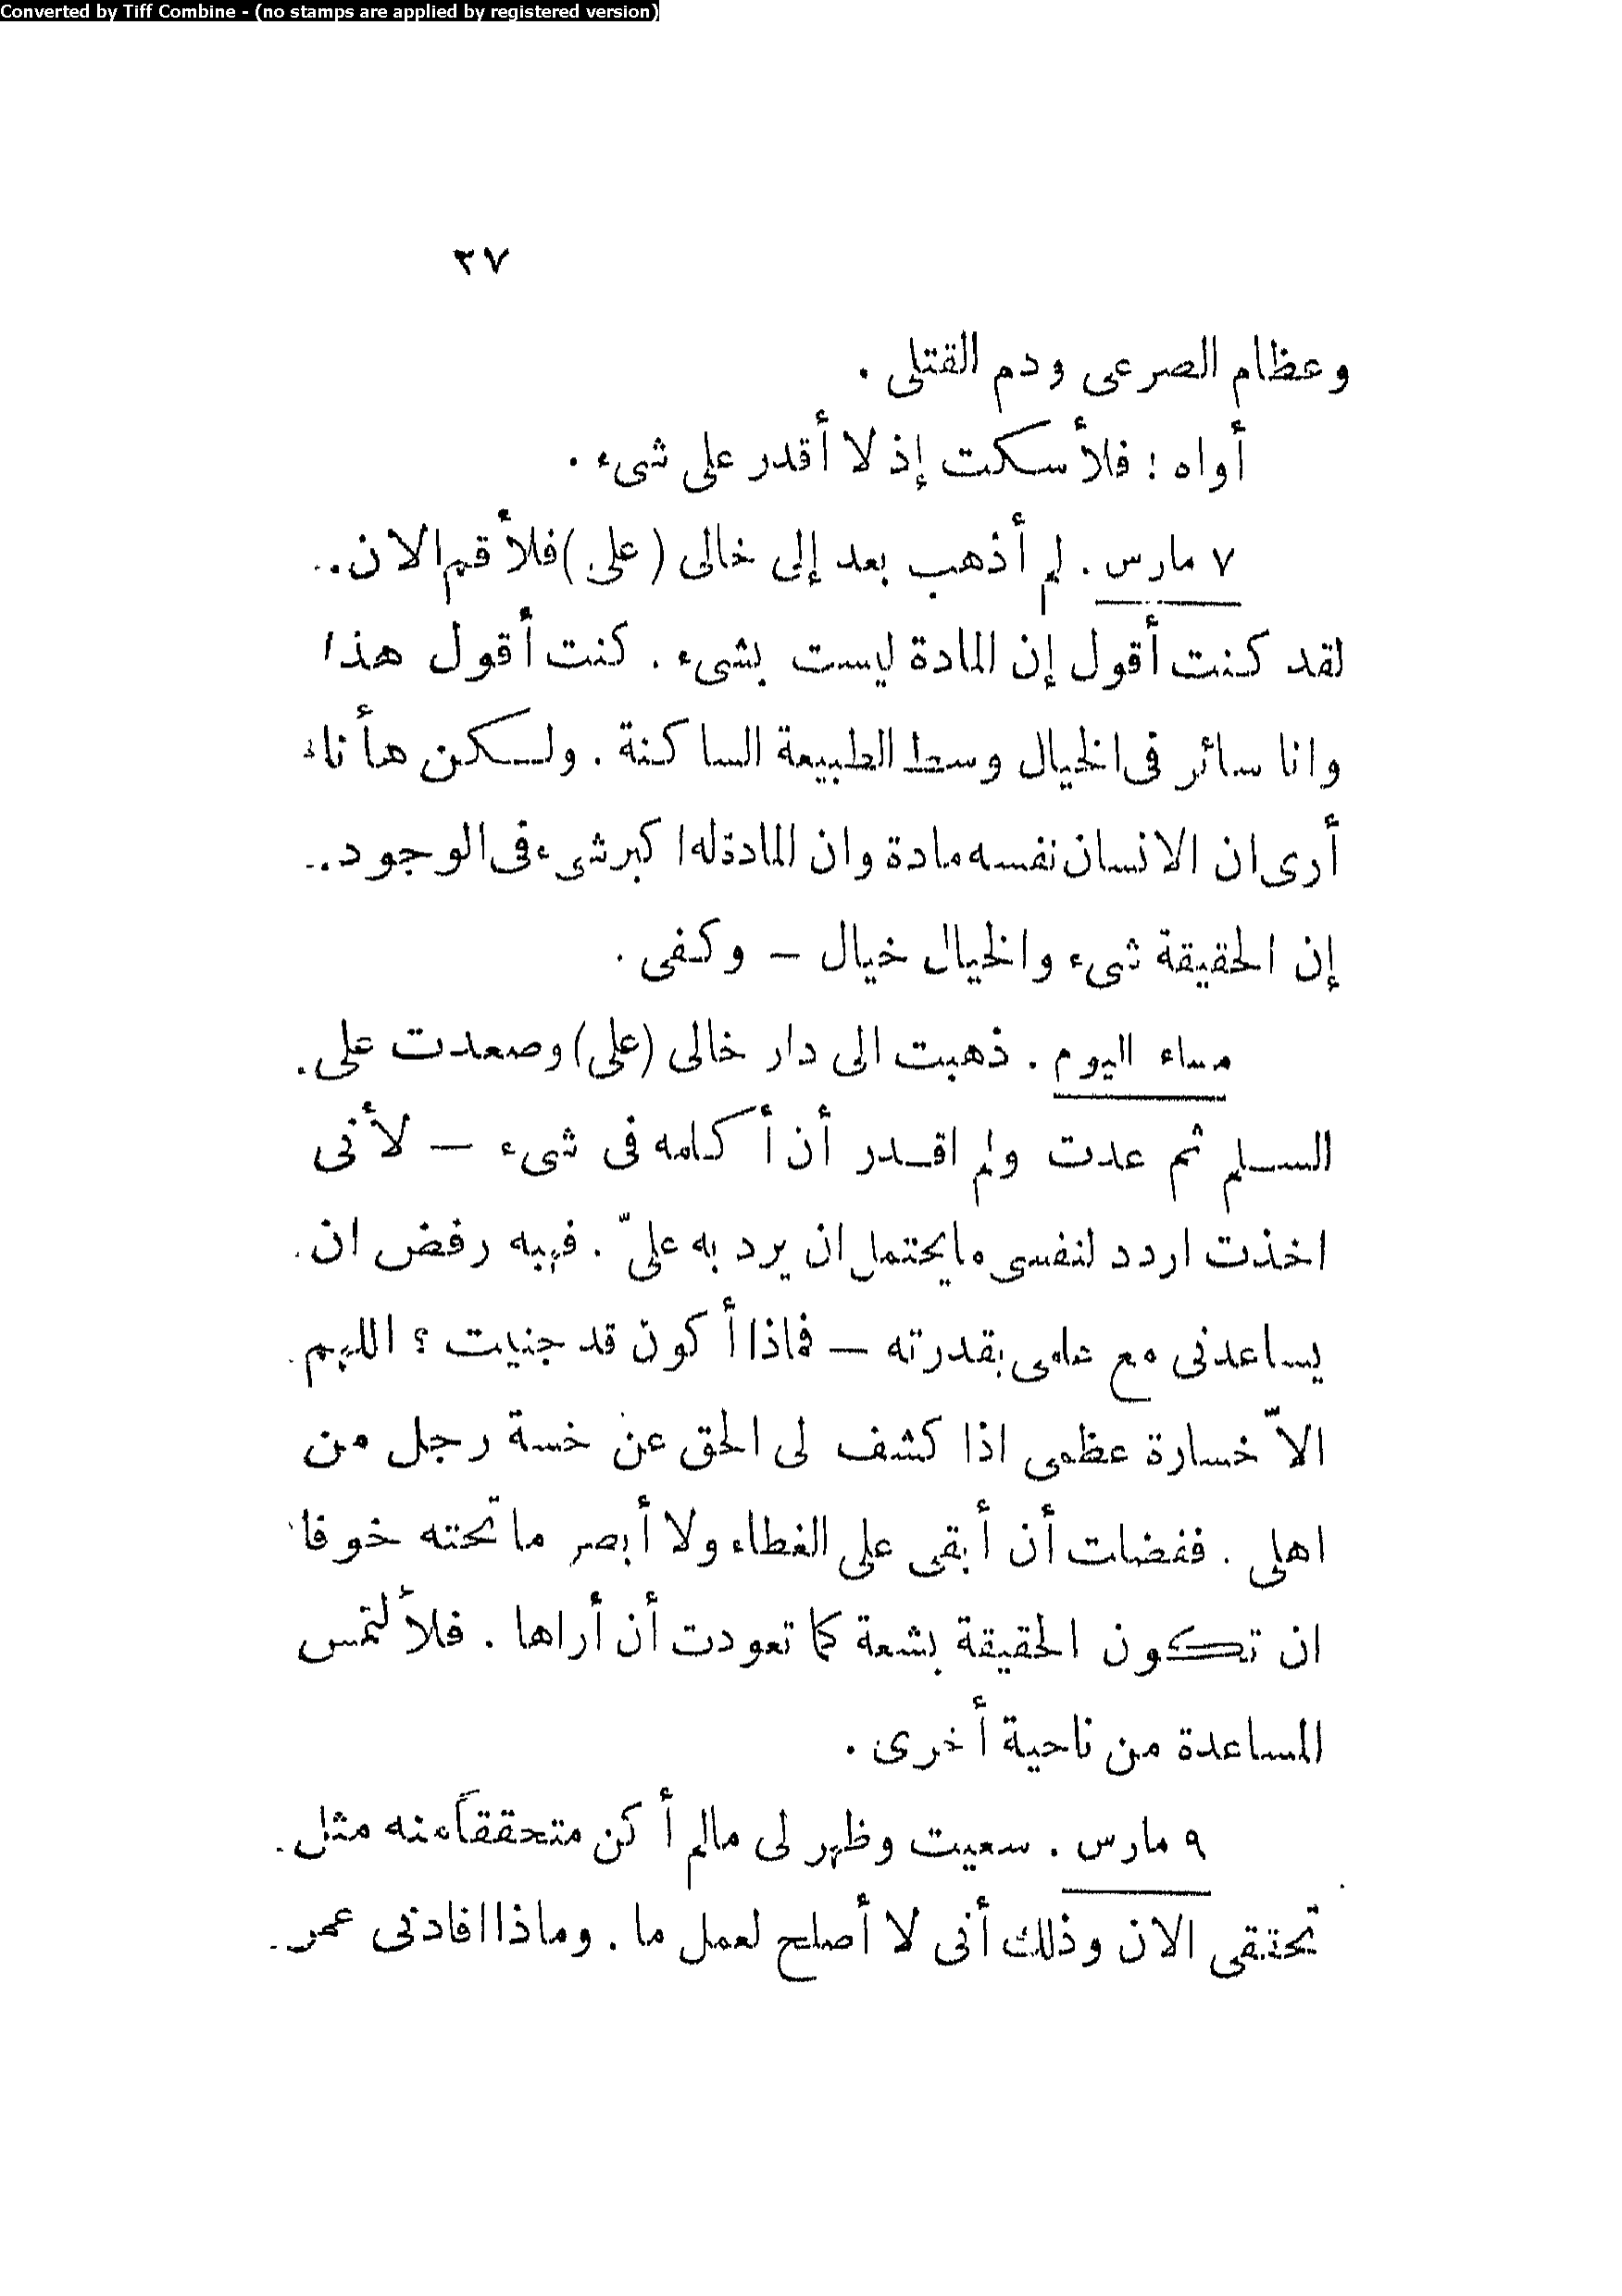 Converted by Tiff Combine - (no stamps are applied by registered version)
٣٧
وعظام الصرعى ودم القتلى .
أواه ! فلأسكت إذ لا أقدر على شىء .
٧ مارس . لم أذهب بعد إلى خالى (على) فلأقم الان ..
لقد كنت أقول إن المادة ليست بشىء . كنت أقول هذا
وانا سائر فى الخيال وسط الطبيعة الساكنة . ولكن هأناء
أرى ان الانسان نفسه مادة وان المادة لها كبر شىء فى الوجود ..
إن الحقيقة شىء والخيال خيال – وكفى .
مساء اليوم . ذهبت الى دار خالى (على) وصعدت على .
السلم ثم عدت ولم اقدر أن أكلمه فى شىء – لأنى
اخذت اردد لنفسى ما يحتمل ان يرد به علىّ . فهبه رفض ان .
يساعدنى مع علمى بقدرته – فماذا أكون قد جنيت ؟ اللهم .
الاّ خسارة عظمى اذا كشف لى الحق عن خسة رجل من
اهلى . ففضلت أن أبقى على الغطاء ولا أبصر ما تحته خوفا
ان تكون الحقيقة بشعة كما تعودت أن أراها . فلألتمس
المساعدة من ناحية أخرى .
٩ مارس . سعيت وظهر لى مالم أكن متحققاً منه مثل .
تحققى الان وذلك أنى لا أصلح لعمل ما . وماذا افادنى عمر .